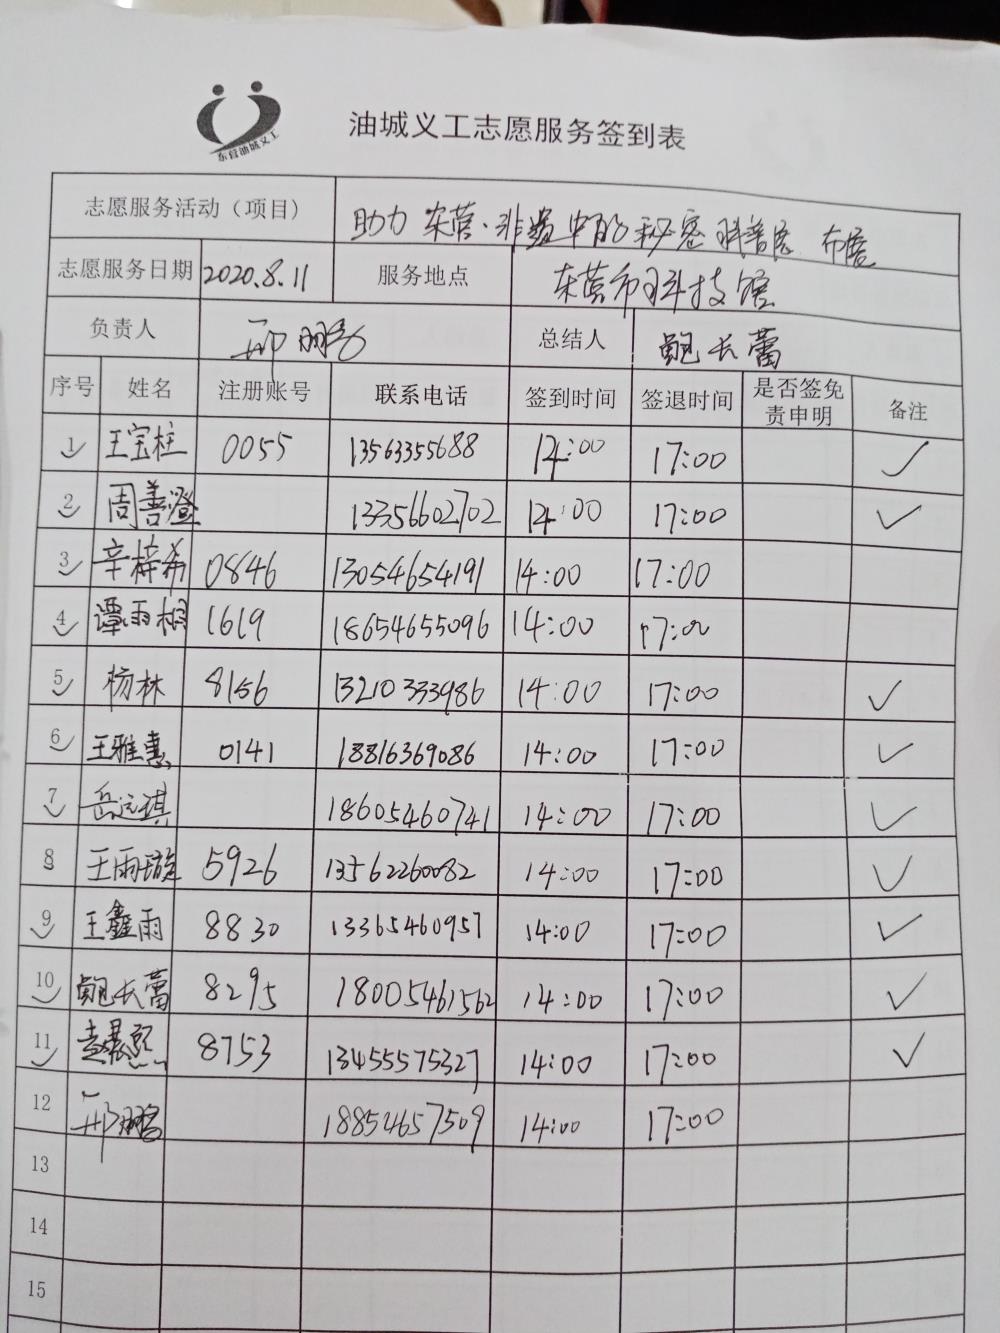 东营油城义工
油城义工志愿服务签到表
志愿服务活动（项目） 助力 东营·非遗中的秘密 科普展 布展
志愿服务日期 2020.8.11 服务地点 东营市科技馆
负责人 邢鹏 总结人 鲍长蕾
序号 姓名 注册账号 联系电话 签到时间 签退时间 是否签免责申明 备注
1 王宝柱 0055 13563355688 14:00 17:00 ✓
2 周善澄 13356602702 14:00 17:00 ✓
3 辛梓希 0846 13054654191 14:00 17:00
4 谭雨桐 1619 18654655096 14:00 17:00
5 杨林 8156 13210333986 14:00 17:00 ✓
6 王雅惠 0141 18816369086 14:00 17:00 ✓
7 岳远琪 18605460741 14:00 17:00 ✓
8 王雨璇 5926 13562260082 14:00 17:00 ✓
9 王鑫雨 8830 13365460957 14:00 17:00 ✓
10 鲍长蕾 8295 18005461562 14:00 17:00 ✓
11 8753 13455575327 14:00 17:00 ✓
12 邢鹏 18854657509 14:00 17:00
13
14
15